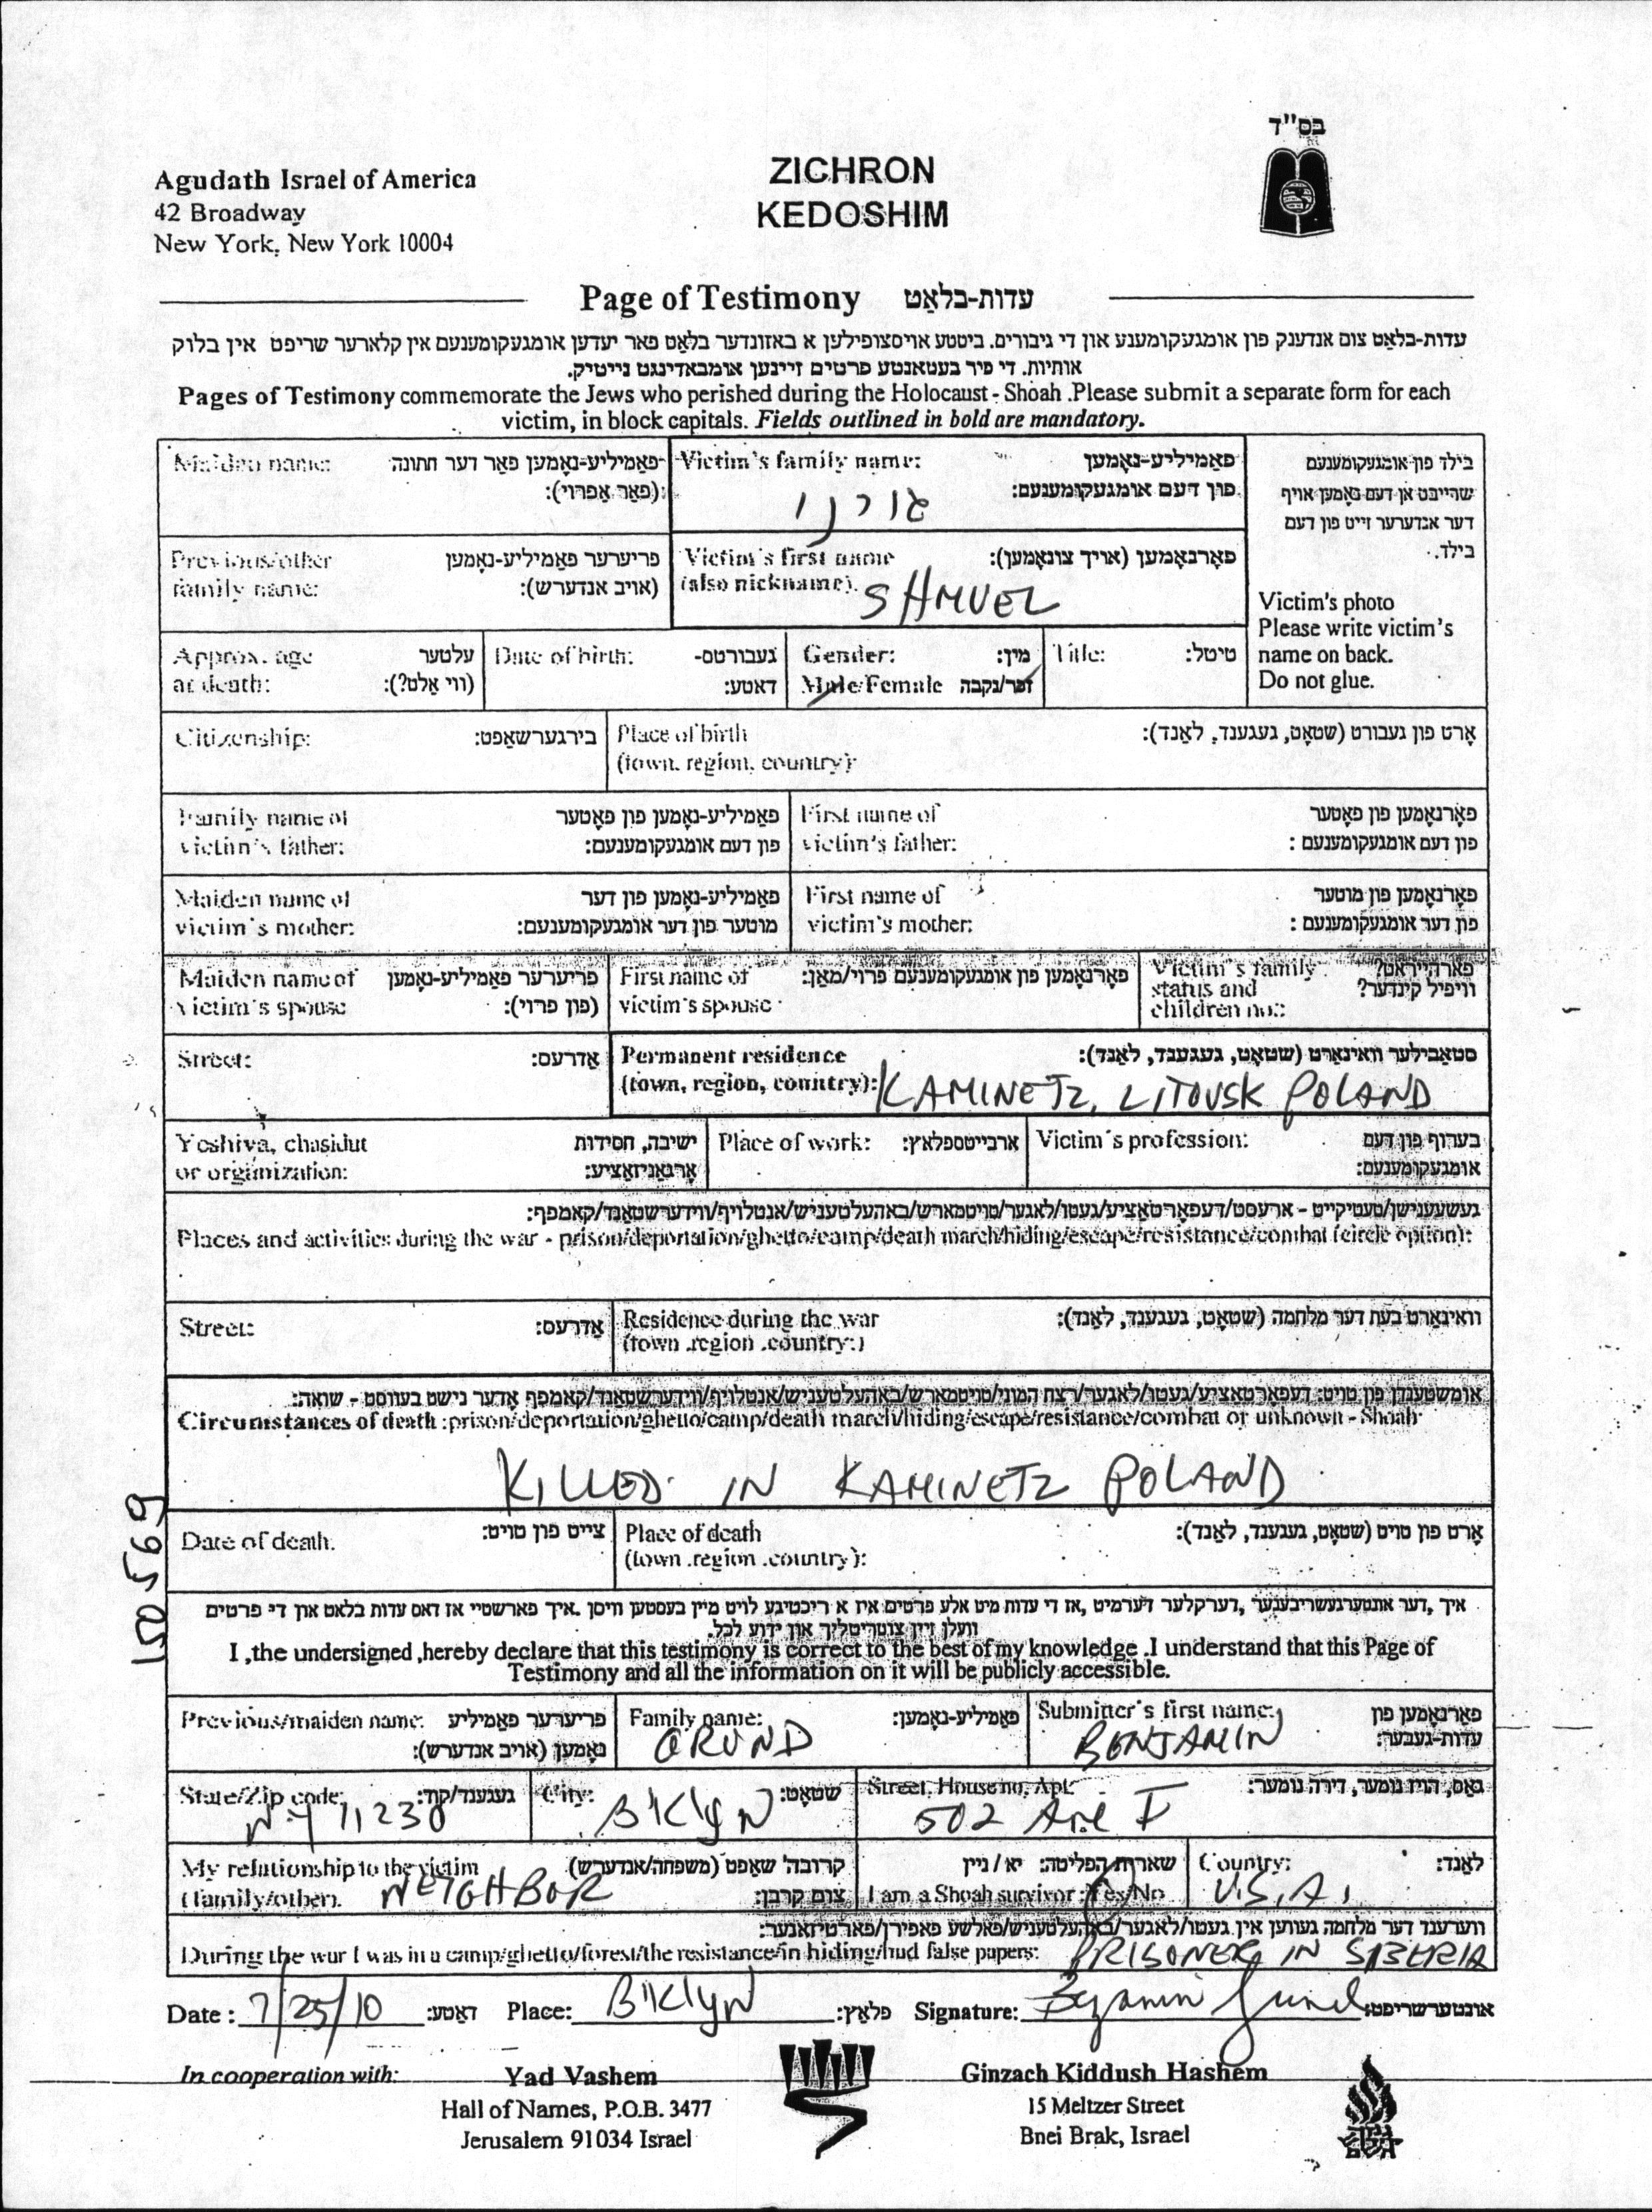 בס"ד
Agudath Israel of America
42 Broadway
New York, New York 10004
ZICHRON
KEDOSHIM
Page of Testimony עדות-בלאַט
עדות-בלאַט צום אנדענק פון אומגעקומענע און די גיבורים. ביטטע אויסצופילען א באזונדער בלאַט פאר יעדען אומגעקומענעם אין קלארער שריפט אין בלוק
אותיות. די פיר בעטאנטע פרטים זיינען אומבאדינגט נייטיק.
Pages of Testimony commemorate the Jews who perished during the Holocaust - Shoah .Please submit a separate form for each
victim, in block capitals. Fields outlined in bold are mandatory.
Maiden name: פאַמיליע-נאָמען פאַר דער חתונה
(פאַר אַפרוי):
Victim's family name: פאַמיליע-נאָמען
פון דעם אומגעקומענעם:
גורנו
בילד פון אומגעקומענעם
שרייבט אן דעם נאָמען אויף
דער אנדערער זייט פון דעם
בילד.
Victim's photo
Please write victim's
name on back.
Do not glue.
Previous/other פריערער פאַמיליע-נאָמען
family name: (אויב אנדערש):
Victim's first name פאָרנאָמען (אויך צונאָמען):
(also nickname). SHMUEL
Approx. age עלטער
at death: (ווי אַלט?):
Date of birth: געבורטס-
דאטע:
Gender: מין:
Male/Female זכר/נקבה
Title: טיטל:
Citizenship: בירגערשאַפט:
Place of birth אָרט פון געבורט (שטאָט, געגענד, לאַנד):
(town, region, country):
Family name of פאַמיליע-נאָמען פון פאָטער
victim's father: פון דעם אומגעקומענעם:
First name of פאָרנאָמען פון פאָטער
victim's father: פון דעם אומגעקומענעם :
Maiden name of פאַמיליע-נאָמען פון דער
victim's mother: מוטער פון דער אומגעקומענעם:
First name of פאָרנאָמען פון מוטער
victim's mother: פון דער אומגעקומענעם :
Maiden name of פריערער פאַמיליע-נאָמען
victim's spouse (פון פרוי):
First name of פאָרנאָמען פון אומגעקומענעם פרוי/מאַן:
victim's spouse
Victim's family פארהייראַט?
status and וויפיל קינדער?
children no.:
Street: אַדרעס:
Permanent residence סטאַבילער וואוינאָרט (שטאָט, געגענד, לאַנד):
(town, region, country): KAMINETZ, LITOVSK POLAND
Yeshiva, chasidut ישיבה, חסידות
or organization: אָרגאַניזאַציע:
Place of work: ארבייטספלאַץ:
Victim's profession: בערוף פון דעם
אומגעקומענעם:
געשעענישן/טעטיקייט - ארעסט/דעפאָרטאַציע/געטו/לאַגער/טויטמארש/באהעלטעניש/אנטלויף/ווידערשטאַנד/קאמפף:
Places and activities during the war - prison/deportation/ghetto/camp/death march/hiding/escape/resistance/combat (circle option):
Street: אַדרעס:
Residence during the war וואוינאָרט בעת דער מלחמה (שטאָט, געגענד, לאַנד):
(town .region .country:)
אומשטענדן פון טויט: דעפאָרטאַציע/געטו/לאַגער/רצח המוני/טויטמארש/באהעלטעניש/אנטלויף/ווידערשטאַנד/קאמפף אָדער נישט בעווסט - שואה:
Circumstances of death :prison/deportation/ghetto/camp/death march/hiding/escape/resistance/combat or unknown - Shoah
KILLED IN KAMINETZ POLAND
150569
Date of death. צייט פון טויט:
Place of death אָרט פון טויט (שטאָט, געגענד, לאַנד):
(town .region .country):
איך ,דער אונטערגעשריבענער ,דערקלער דערמיט ,אז די עדות מיט אלע פרטים איז א ריכטיגע לויט מיין בעסטען וויסן .איך פארשטיי אז דאס עדות בלאט און די פרטים
וועלן זיין צוטריטליך און ידוע לכל.
I ,the undersigned ,hereby declare that this testimony is correct to the best of my knowledge .I understand that this Page of
Testimony and all the information on it will be publicly accessible.
Previous/maiden name: פריערער פאַמיליע
נאָמען (אויב אנדערש):
Family name: פאַמיליע-נאָמען:
GRUND
Submitter's first name: פאָרנאָמען פון
BENJAMIN עדות-געבער:
State/Zip code: געגענד/קוד:
NY 11230
City: שטאָט:
B'KLYN
Street, House no, Apt: גאס, הויז נומער, דירה נומער:
502 Ave F
My relationship to the victim קרובה' שאַפט (משפחה/אנדערש)
(family/other). NEIGHBOR צום קרבן:
שארית הפליטה: יא / ניין
I am a Shoah survivor: Yes/No
Country: לאַנד:
U.S.A.
ווערענד דער מלחמה געווען אין געטו/לאגער/באַהעלטעניש/פאלשע פאפירן/פארטיזאנער:
During the war I was in a camp/ghetto/forest/the resistance/in hiding/had false papers: PRISONER IN SIBERIA
Date : 7/25/10 דאטע: Place: B'KLYN פלאַץ: Signature: Benjamin Grund אונטערשריפט:
In cooperation with: Yad Vashem
Hall of Names, P.O.B. 3477
Jerusalem 91034 Israel
Ginzach Kiddush Hashem
15 Meltzer Street
Bnei Brak, Israel